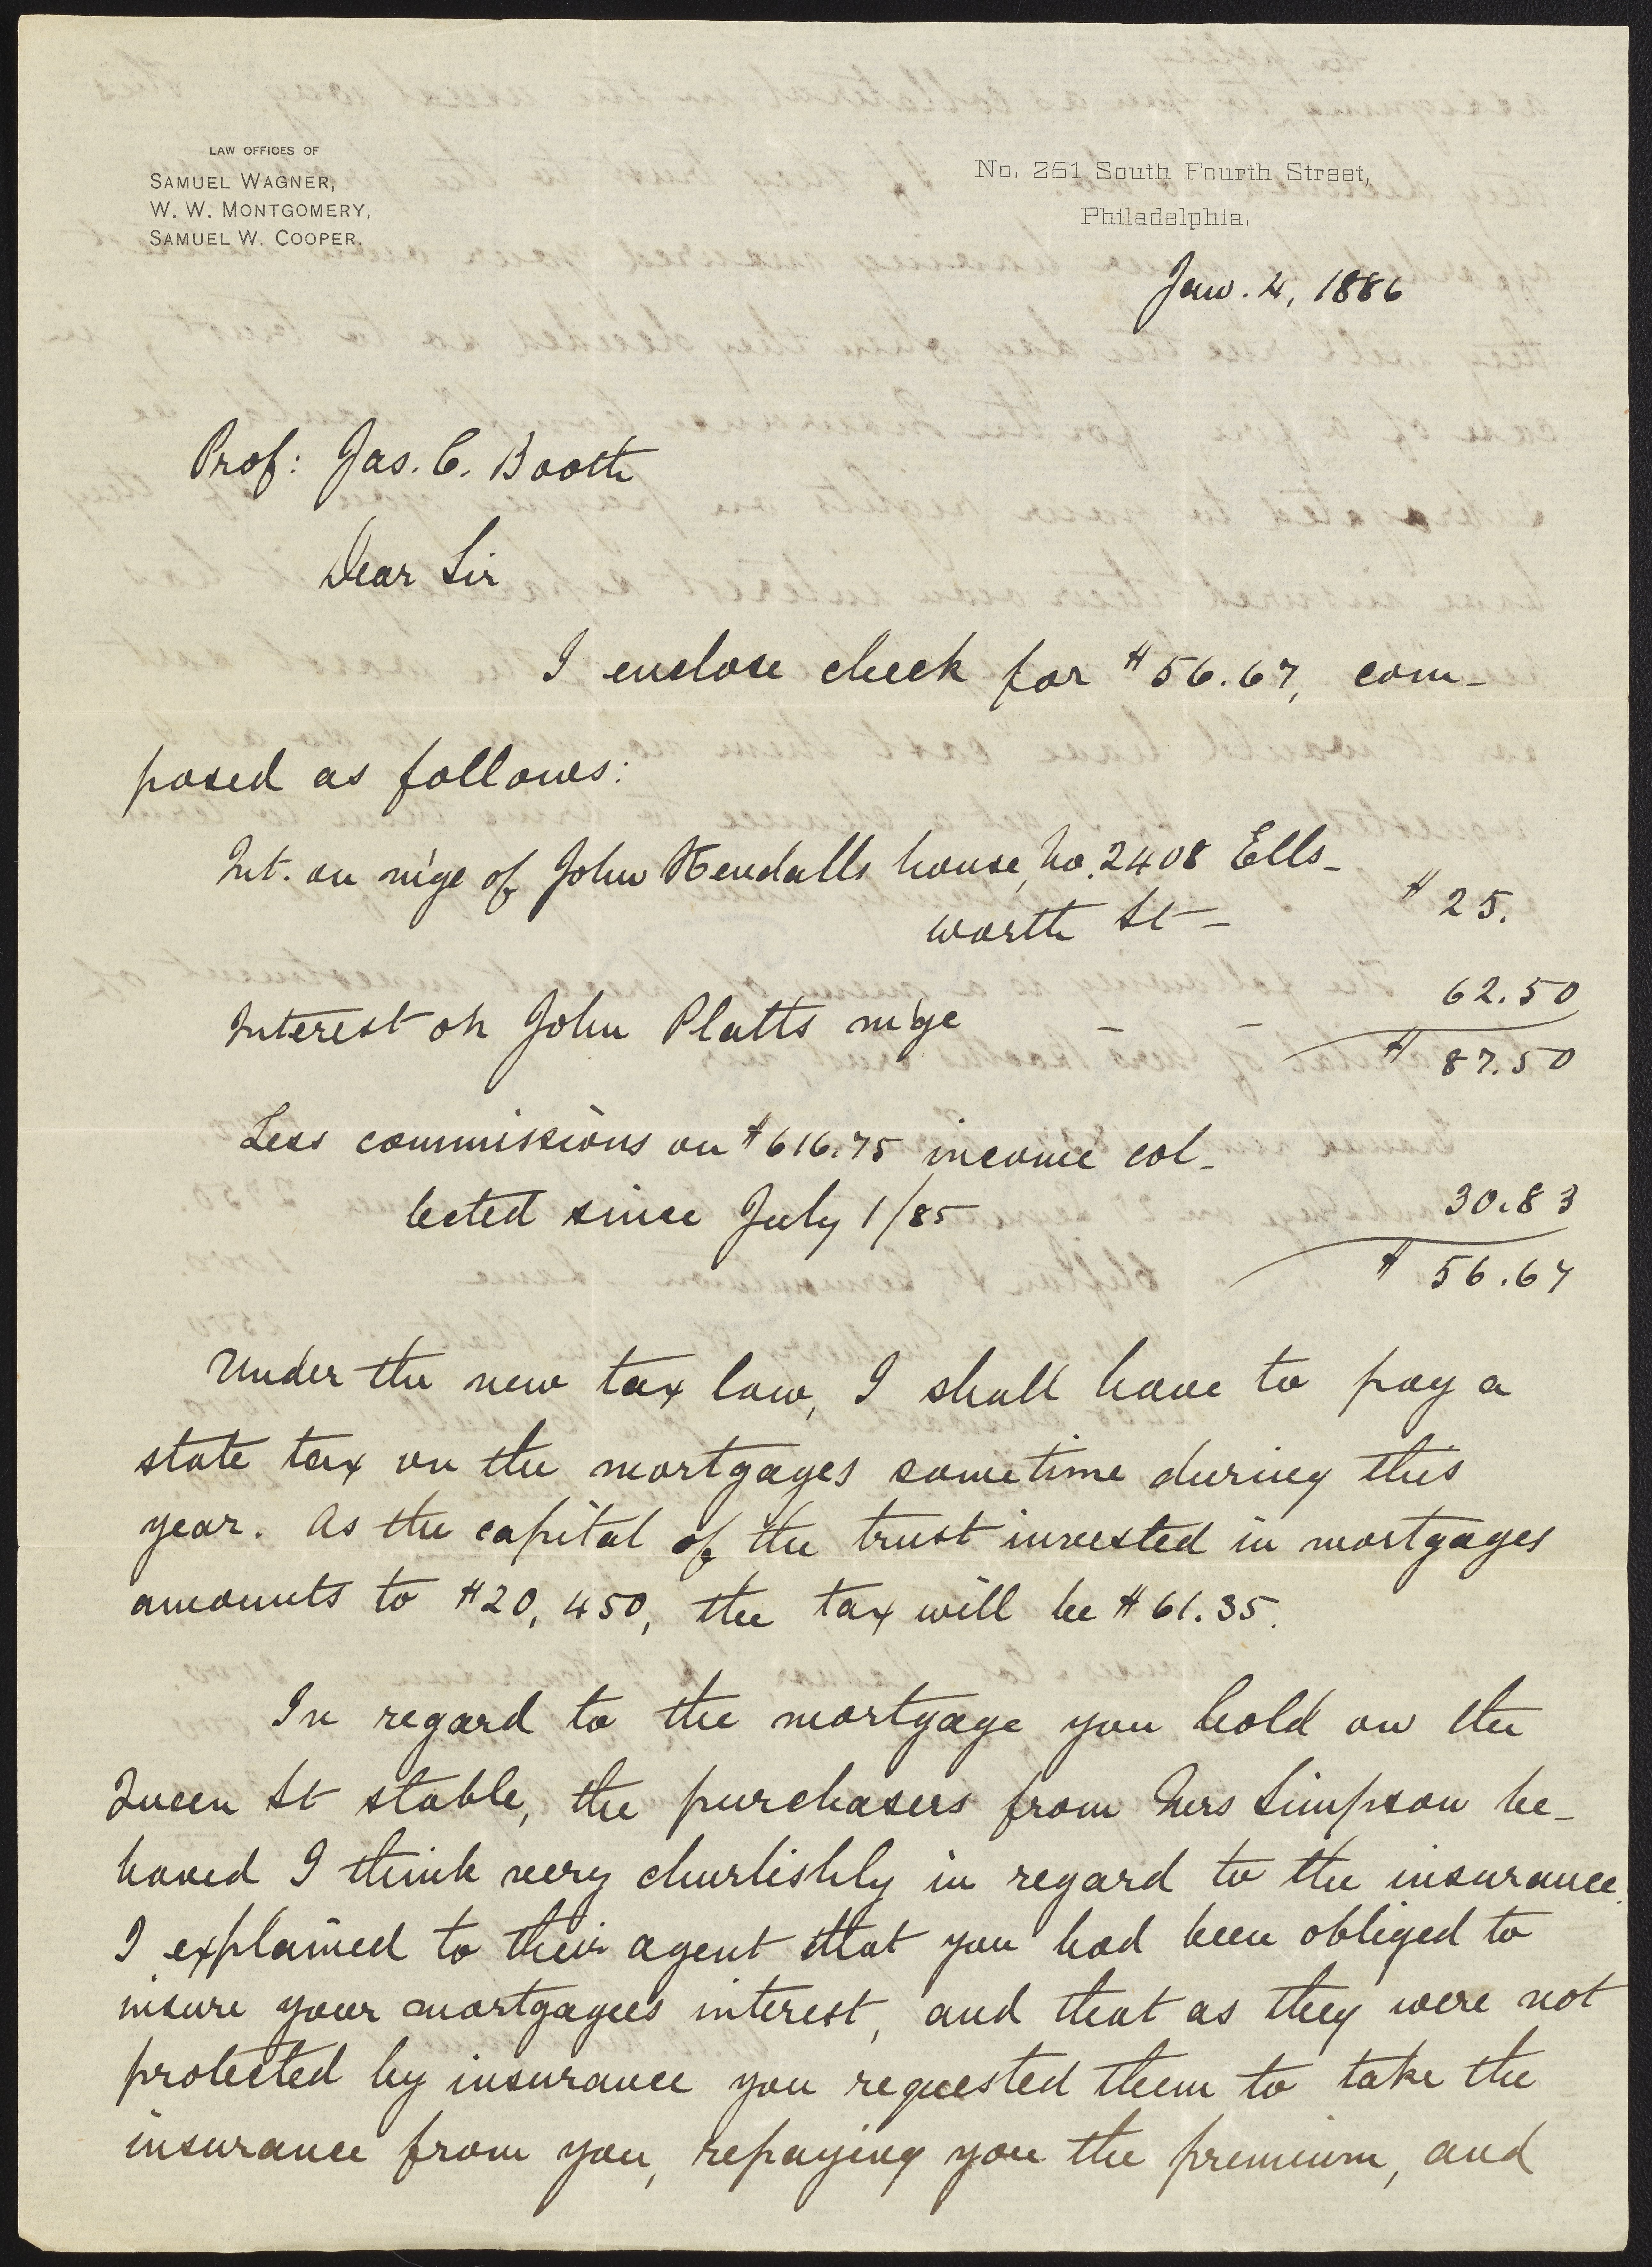 LAW OFFICES OF
SAMUEL WAGNER,
W. W. MONTGOMERY,
SAMUEL W. COOPER.
No. 261 South Fourth Street,
Philadelphia,
Jan. 4, 1886
Prof: Jas. C. Booth
Dear Sir
I enclose check for $56.67, com-
posed as follows:
Int. on m'ge of John Kendalls house, No. 2408 Ells-
worth St - $25.
Interest on John Platts m'ge - - 62.50
$87.50
Less commissions on $616.75 income col-
lected since July 1/85 30.83
$56.67
Under the new tax law, I shall have to pay a
state tax on the mortgages sometime during this
year. As the capital of the trust invested in mortgages
amounts to $20,450, the tax will be $61.35.
In regard to the mortgage you hold on the
Queen St stable, the purchasers from Mrs Simpson be-
haved I think very churlishly in regard to the insurance.
I explained to their agent that you had been obliged to
insure your mortgagees interest, and that as they were not
protected by insurance you requested them to take the
insurance from you, repaying you the premium, and